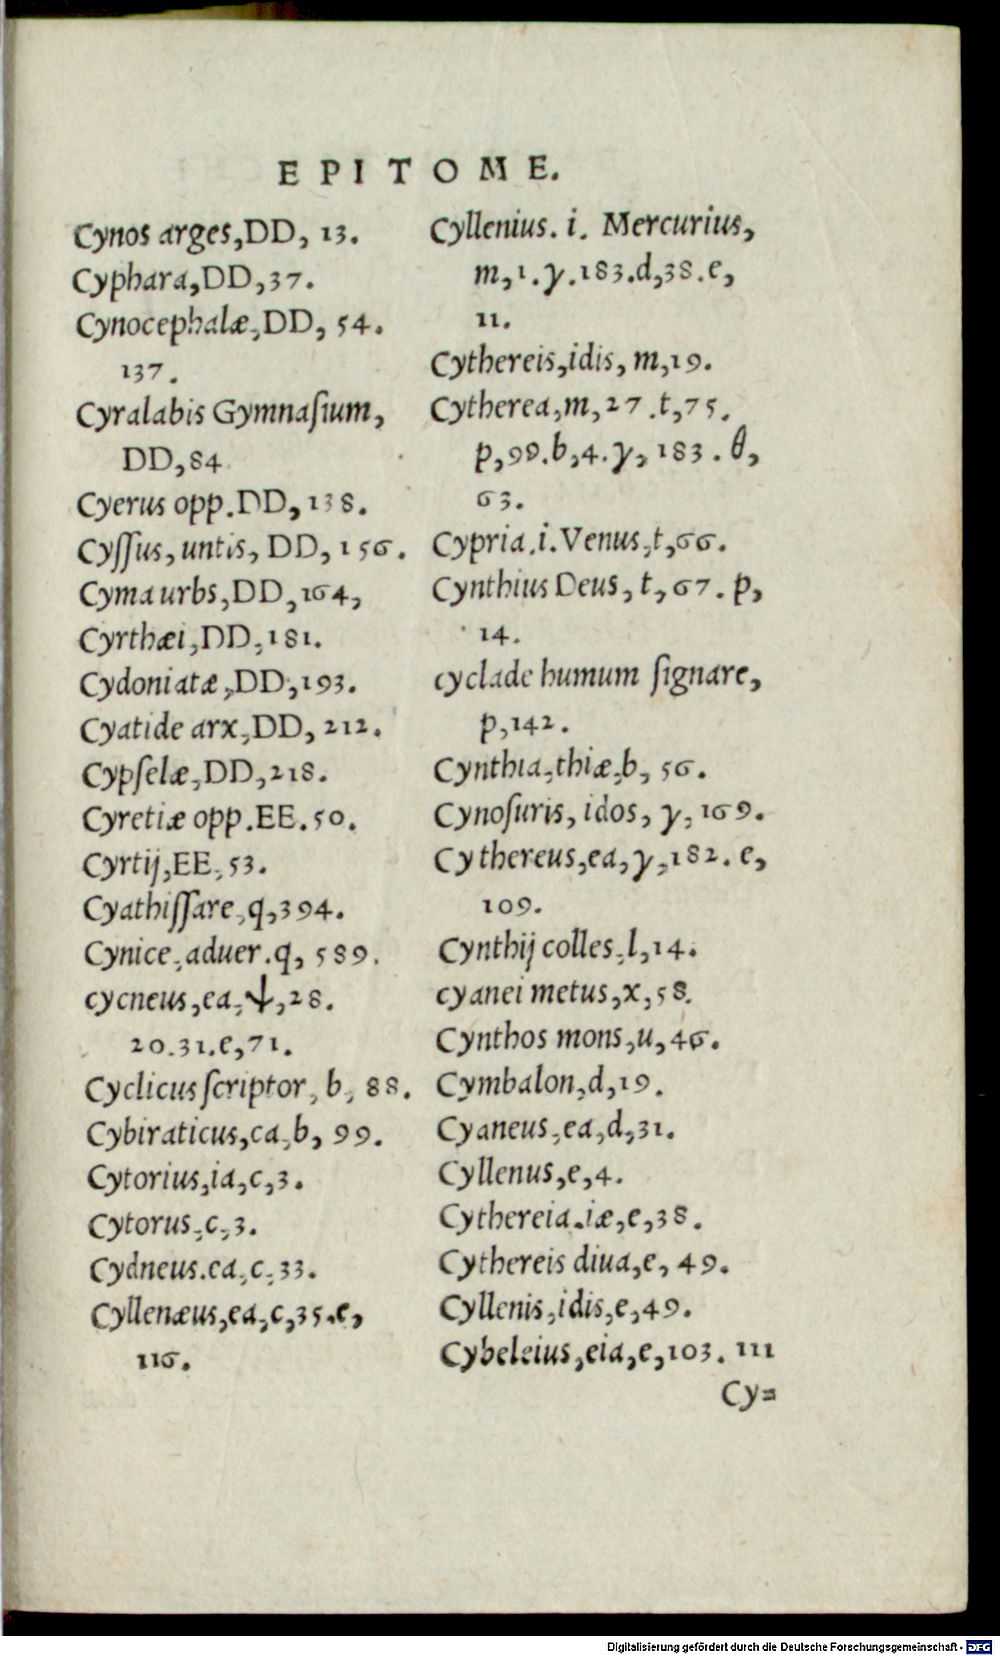 EPITOME.
Cynos arges, DD, 13.
Cyphara, DD, 37.
Cynocephalæ, DD, 54.
137.
Cyralabis Gymnaſium,
DD, 84
Cyerus opp. DD, 138.
Cyſſus, untis, DD, 156.
Cyma urbs, DD, 164,
Cyrthæi, DD, 181.
Cydoniatæ, DD, 193.
Cyatide arx, DD, 212.
Cypſelæ, DD, 218.
Cyretiæ opp. EE. 50.
Cyrtij, EE, 53.
Cyathiſſare, q, 394.
Cynice, aduer. q, 589.
cycneus, ea, ψ, 28.
20. 31. e, 71.
Cyclicus ſcriptor, b, 88.
Cybiraticus, ca, b, 99.
Cytorius, ia, c, 3.
Cytorus, c, 3.
Cydneus. ea, c, 33.
Cyllenæus, ea, c, 35. e,
116.
Cyllenius. i. Mercurius,
m, 1. γ. 183. d, 38. e,
11.
Cythereis, idis, m, 19.
Cytherea, m, 27. t, 75.
p, 99. b, 4. γ, 183. θ,
63.
Cypria. i. Venus, t, 66.
Cynthius Deus, t, 67. p,
14.
cyclade humum ſignare,
p, 142.
Cynthia, thiæ, b, 56.
Cynoſuris, idos, γ, 169.
Cythereus, ea, γ, 182. e,
109.
Cynthij colles, l, 14.
cyanei metus, x, 58.
Cynthos mons, u, 46.
Cymbalon, d, 19.
Cyaneus, ea, d, 31.
Cyllenus, e, 4.
Cythereia. iæ, e, 38.
Cythereis diua, e, 49.
Cyllenis, idis, e, 49.
Cybeleius, eia, e, 103. 111
Cy=
Digitalisierung gefördert durch die Deutsche Forschungsgemeinschaft - DFG